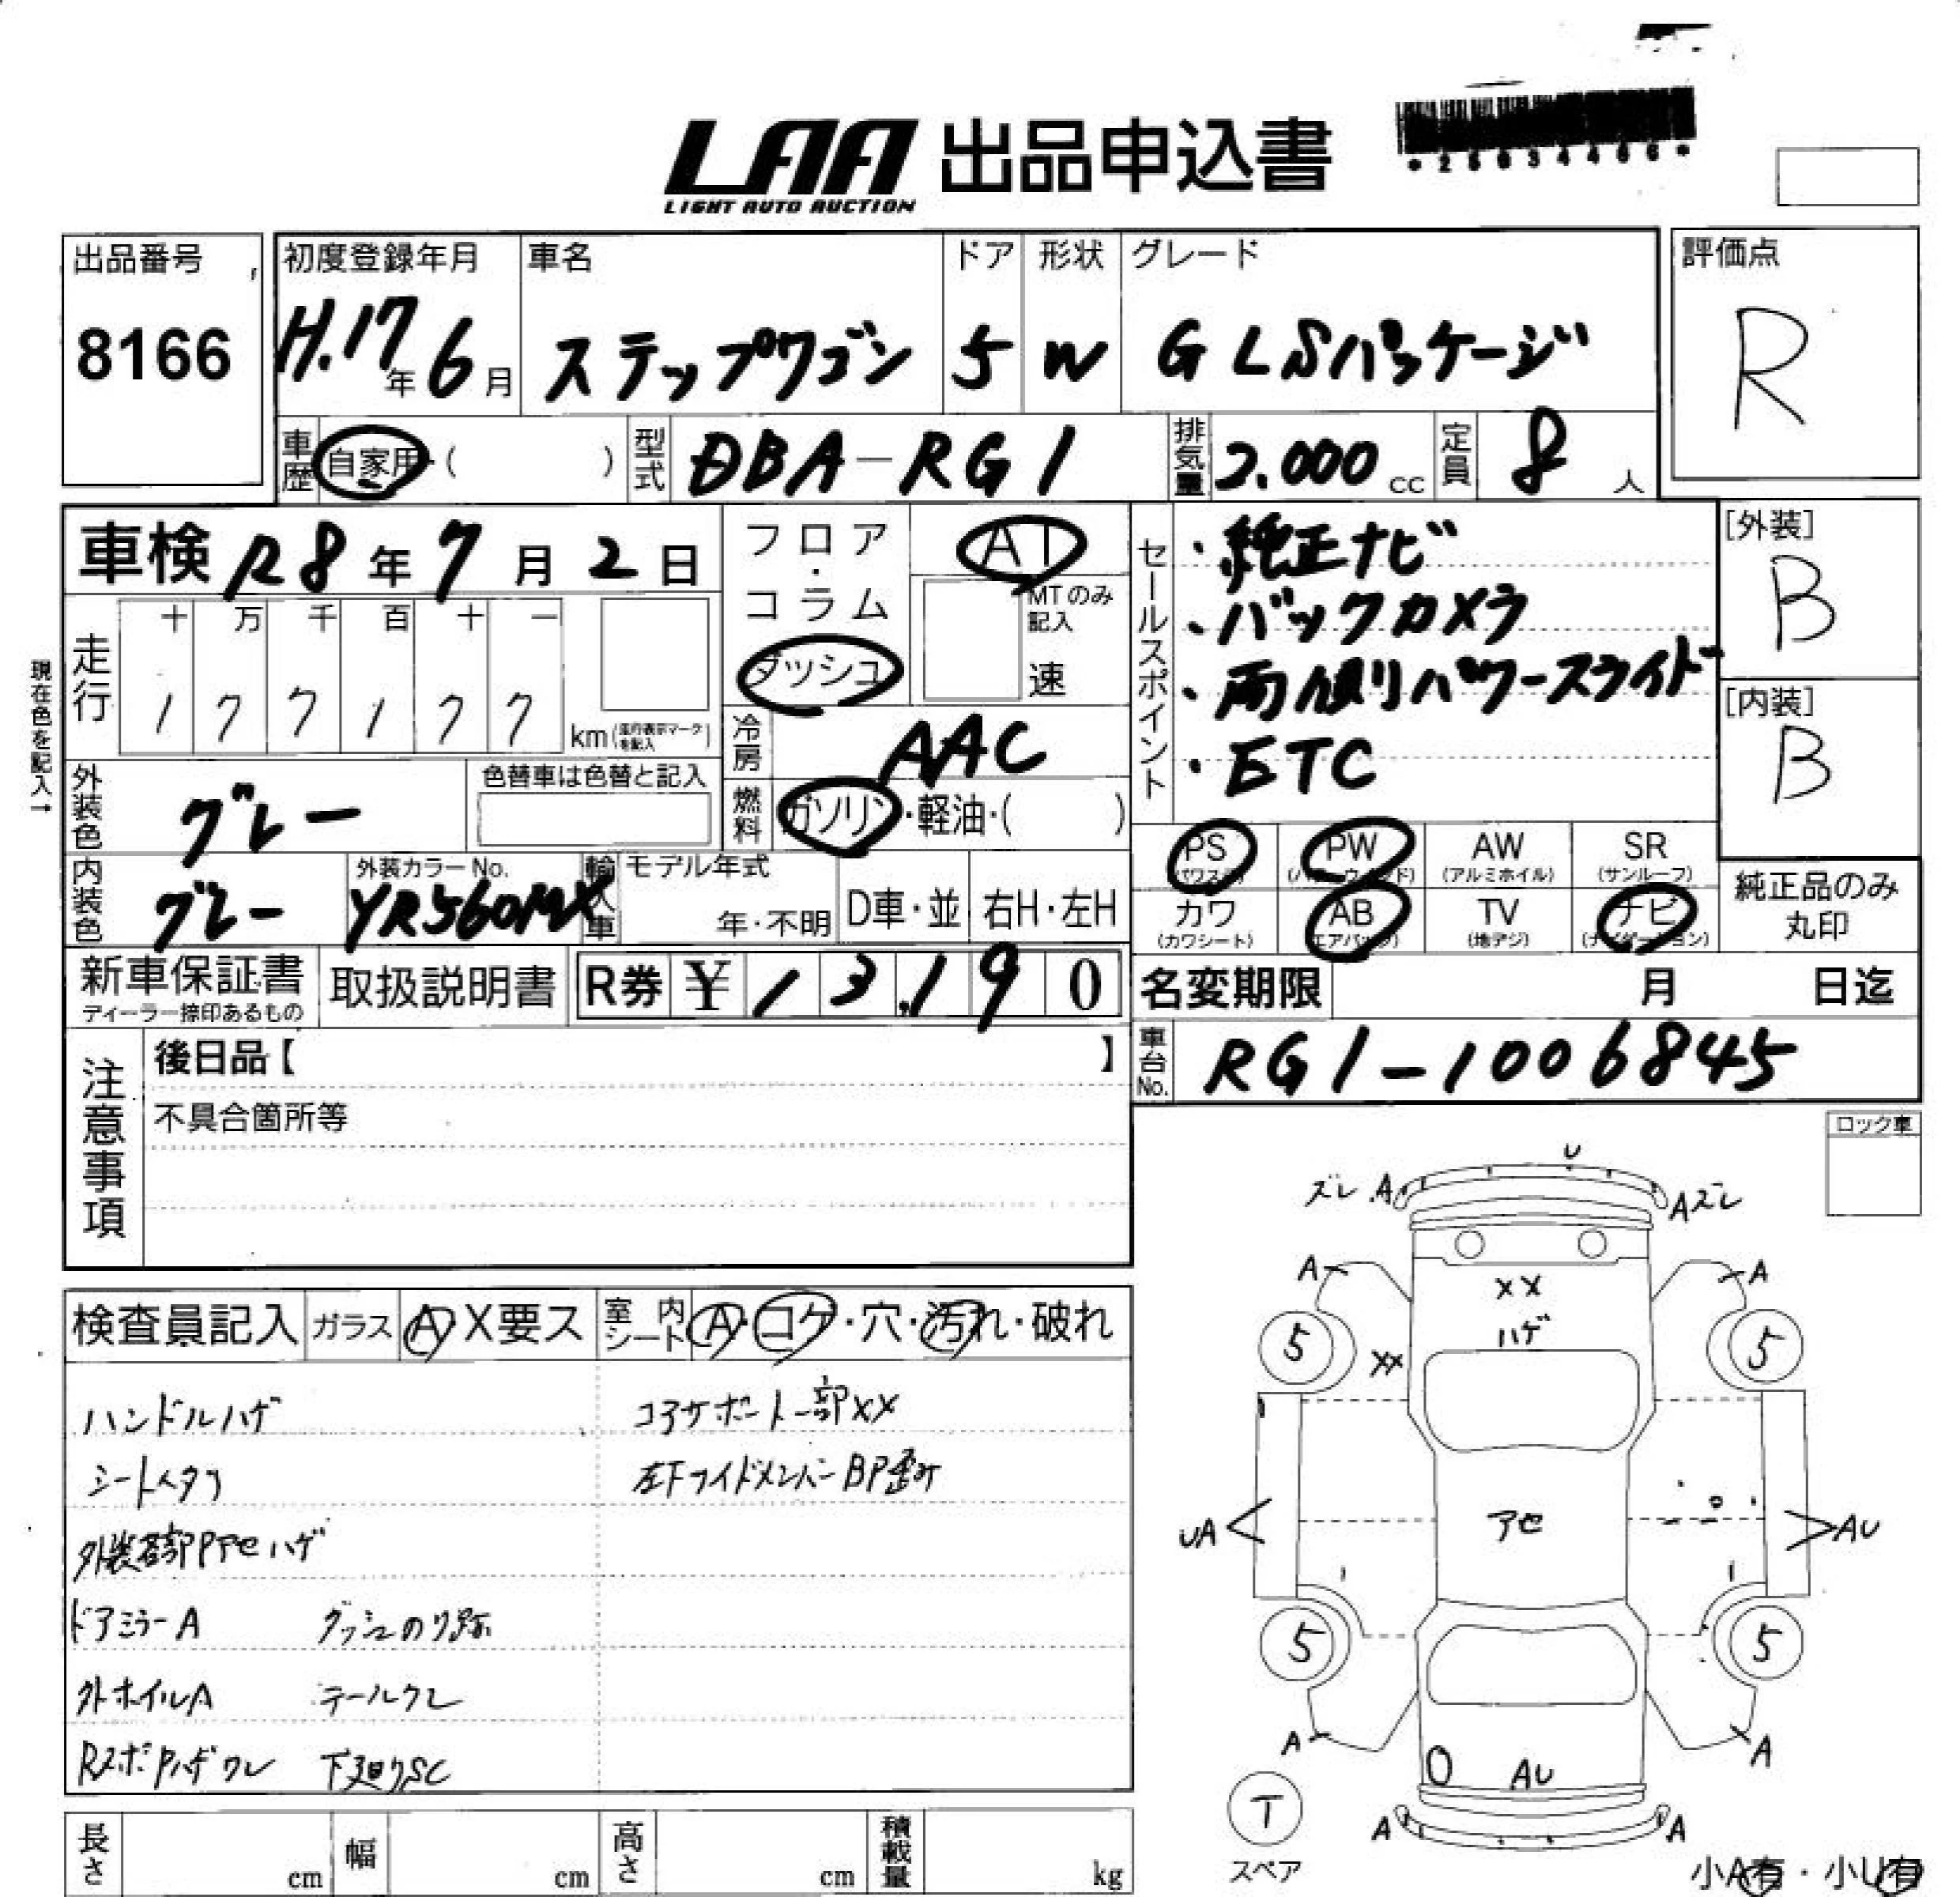 LAA 出品申込書
LIGHT AUTO AUCTION
*25034466*
出品番号
8166
初度登録年月
H.17年6月
車名
ステップワゴン
ドア
5
形状
W
グレード
G LSパッケージ
評価点
R
車歴 自家用・( )
型式 DBA-RG1
排気量 2.000 cc
定員 8 人
車検 R8年7月2日
フロア・コラム
ダッシュ
AT
MTのみ記入
速
セールスポイント
・純正ナビ
・バックカメラ
・両側パワースライド
・ETC
[外装]
B
[内装]
B
現在色を記入→
走行
十 万 千 百 十 一
1 7 7 1 7 7
km(走行表示マークを記入)
冷房 AAC
燃料 ガソリン・軽油・( )
外装色 グレー
色替車は色替と記入
内装色 グレー
外装カラーNo.
YR560MX
輸入車
モデル年式
年・不明
D車・並
右H・左H
PS(パワステ)
PW(パワーウインド)
AW(アルミホイル)
SR(サンルーフ)
カワ(カワシート)
AB(エアバック)
TV(地デジ)
ナビ(ナビゲーション)
純正品のみ
丸印
新車保証書
ディーラー捺印あるもの
取扱説明書
R券 ¥ 1 3,1 9 0
名変期限 月 日迄
車台No. RG1-1006845
注意事項
後日品【 】
不具合箇所等
ロック車
検査員記入
ガラス A X要ス
室内シート A・コゲ・穴・汚れ・破れ
ハンドルハゲ
コアサポート一部XX
シートヘタリ
左Fサイドメンバー BP歪み
外装各部Pアセハゲ
ドアミラーA
ダッシュのリ跡
外ホイルA
テールワレ
RスポPハゲワレ
下廻りSC
U
ズレ A
Aズレ
A
A
XX
ハゲ
5
XX
5
UA
アセ
AU
5
5
A
A
AU
T
スペア
A
A
小A有・小U有
長さ cm
幅 cm
高さ cm
積載量 kg